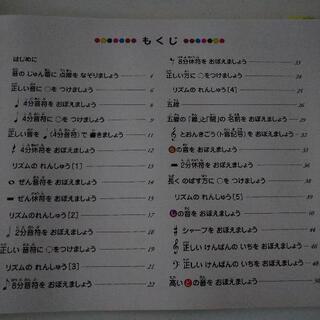 もくじ
はじめに
音の じゅん番に 点線を なぞりましょう 4
正しい音に ○を つけましょう 6
4分音符を おぼえましょう 8
4分休符を おぼえましょう 9
正しい音を ♩(4分音符)で 書きましょう 11
リズムの れんしゅう[1] 13
ぜん音符を おぼえましょう 14
ぜん休符を おぼえましょう 15
リズムの れんしゅう[2] 17
2分音符を おぼえましょう 18
正しい 音符に ○を つけましょう 19
リズムの れんしゅう[3] 21
8分音符を おぼえましょう 22
8分休符を おぼえましょう 23
正しい方に ○を つけましょう
リズムの れんしゅう[4] 25
五線 26
五線の「線」と「間」の 名前を おぼえましょう
とおんきごう(ト音記号)を おぼえましょう 32
の音を おぼえましょう 33
2分休符を おぼえましょう
長く のばす方に ○を つけましょう
リズムの れんしゅう[5] 39
の音を おぼえましょう
シャープを おぼえましょう 44
正しい けんばんの いちを おぼえましょう 46
正しい けんばんの いちを おぼえましょう 48
高い どの音を おぼえましょう